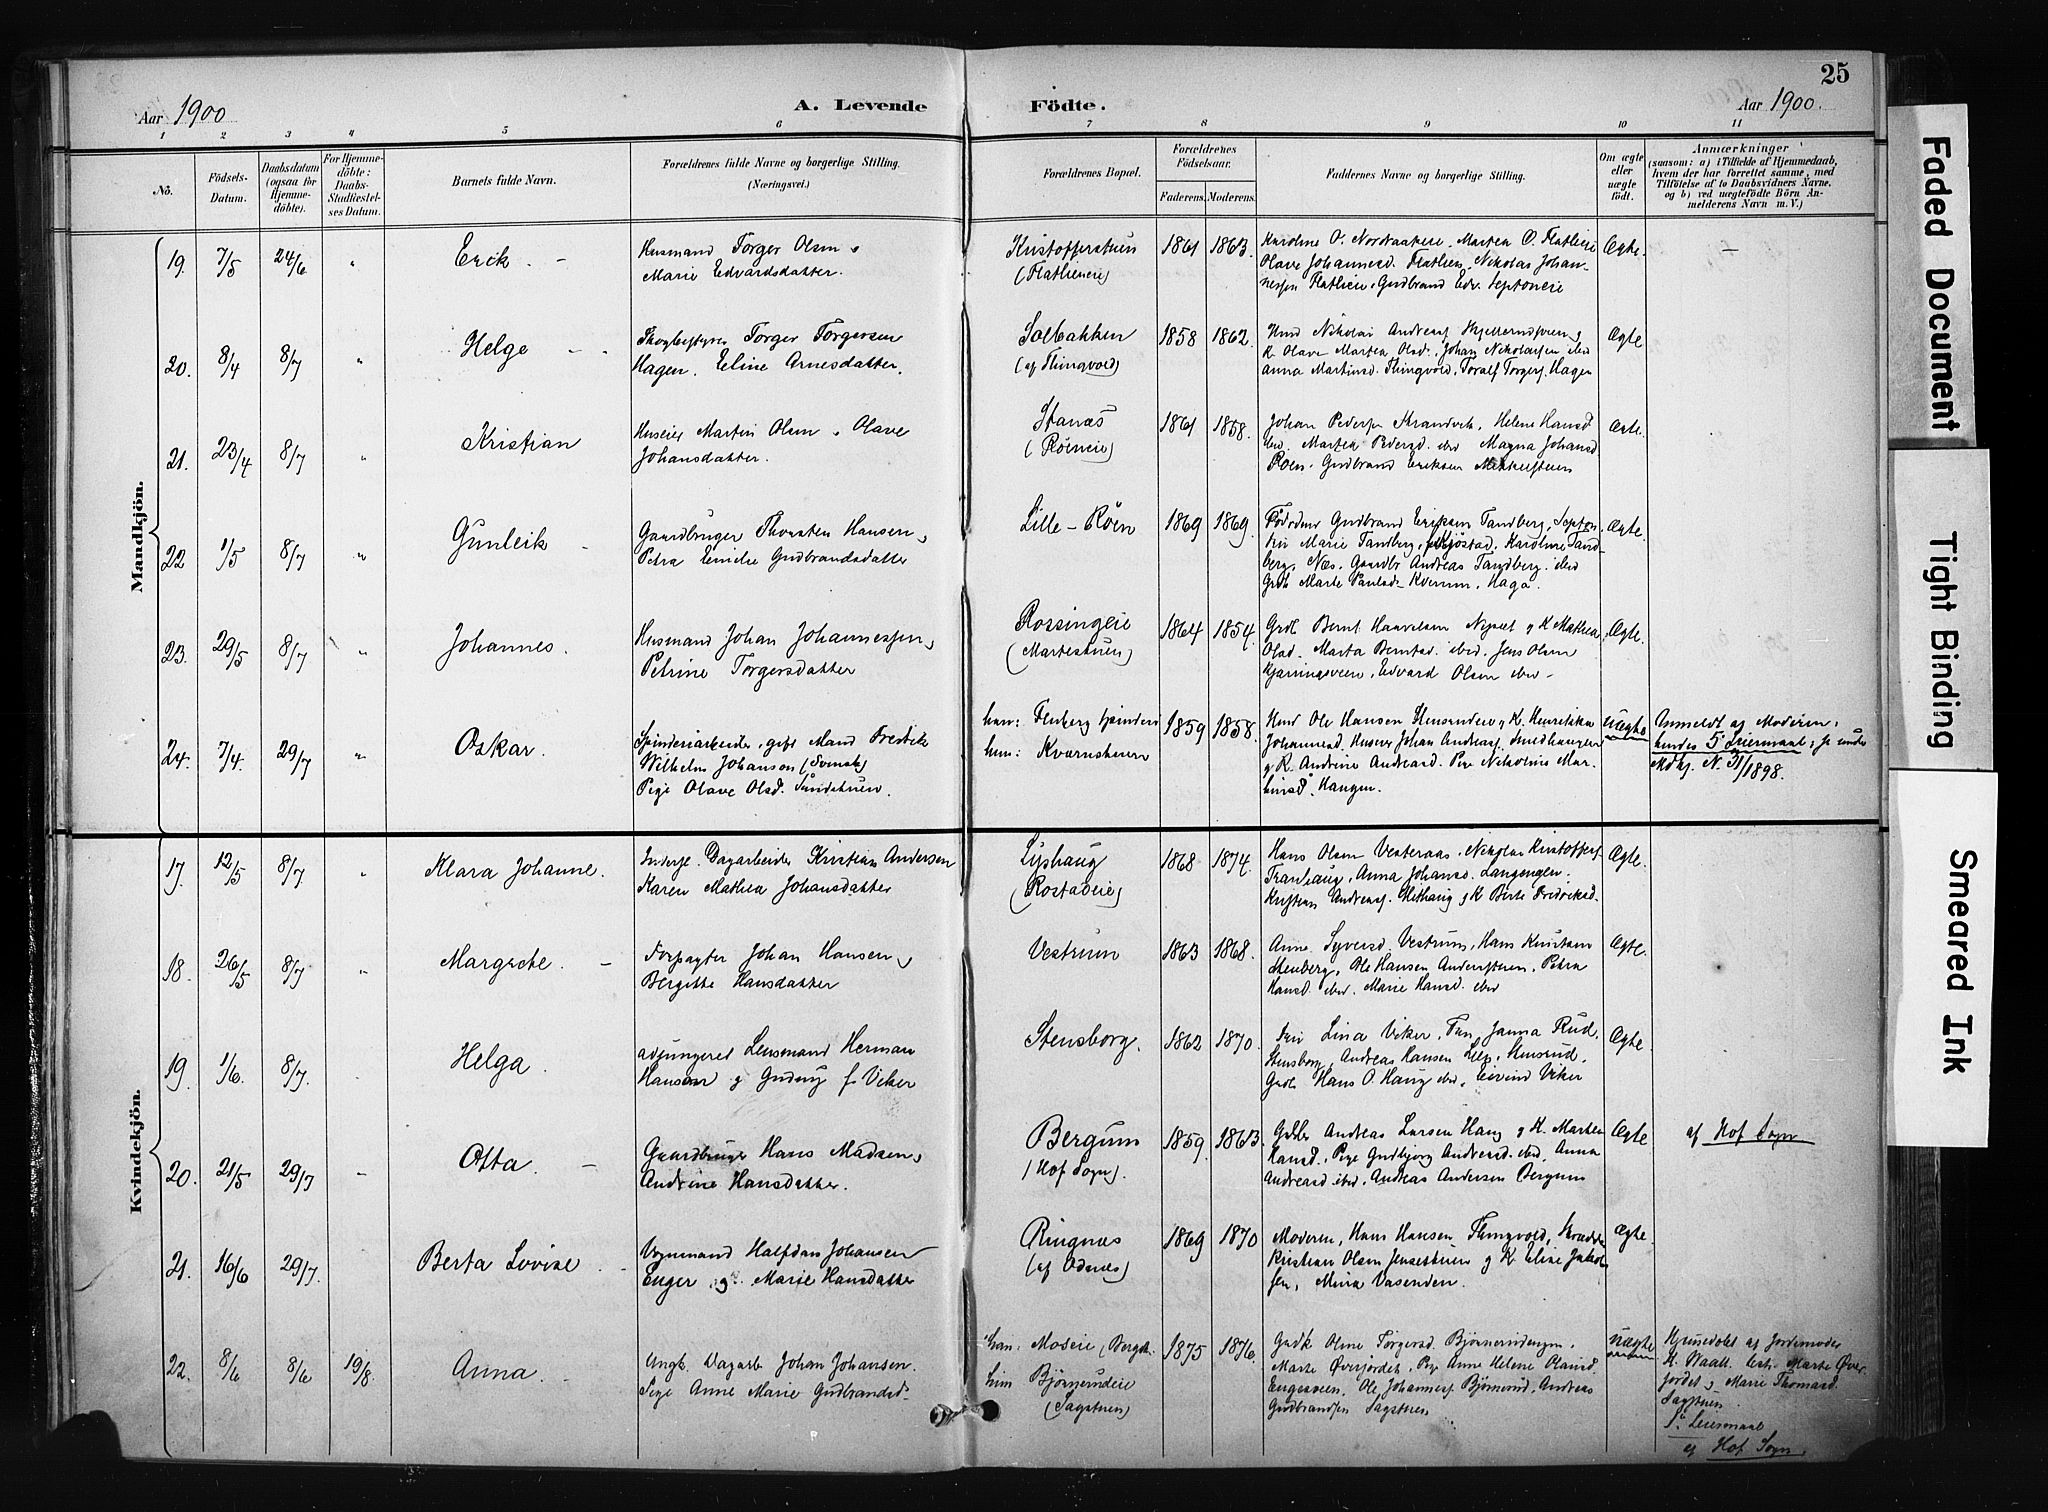 25
Aar 1900
A. Levende Födte.
Aar 1900.
1 2 3 4 5 6 7 8 9 10 11
No.
Födsels-Datum.
Daabsdatum (ogsaa for Hjemme-döbte).
For Hjemme-döbte: Daabs-Stadfæstel-ses Datum.
Barnets fulde Navn.
Forældrenes fulde Navne og borgerlige Stilling. (Næringsvei.)
Forældrenes Bopæl.
Forældrenes Födselsaar.
Faderens. Moderens.
Faddernes Navne og borgerlige Stilling.
Om ægte eller uægte födt.
Anmærkninger
(saasom: a) i Tilfælde af Hjemmedaab, hvem der har forrettet samme, med Tilföielse af to Daabsvidners Navne, og b) ved uægtefödte Börn An-melderens Navn m. V.)
Mandkjön.
19. 7/5 24/6 " Erik
Husmand Torger Olsen
Marie Edvardsdatter.
Kristofferstuen
(Flatlieneie)
1861 1863.
Karoline O. Nordraakeie. Martea O. Flatlieie
Olave Johannesd. Flatlien. Nikolai Johan-
nessen Flatlieie. Gudbrand Edv.
Ægte. –
20. 8/4 8/7 " Helge
Torger Torgersen
Hagen. Eline Arnesdatter.
Solbakken
(af Thingvold)
1858 1862.
Nikolai Andreas
K. Olave Martea Olsd. Johan Nikolaisen ibd
Anna Martinsd. Thingvold, Toralf Torgers. Hagen
Ægte
21. 23/4 8/7 " Kristian
Huseier Martin Olsen, Olave
Johansdatter.
Stanæs
(Röineie)
1861 1858.
Johan Peders. Strandvik, Helene Hansd
ibd. Martea Pedersd. ibd Magna Johansd
Roen. Gudbrand Eriksen Mikkelstuen
Ægte.
22 1/5 8/7 " Gunleik
Gaardbruger Thorsten Hansen,
Petra Emilie Gudbrandsdatter
Lille-Röen
1869 1869.
Gudbrand Eriksen Tandberg,
Marie Tandberg, Karoline Tand-
berg, Næs. Gaardbr Andreas Tandberg. ibd
Grdk Marte Paulsd. Kverum, Haga.
Ægte.
23. 29/5 8/7 " Johannes.
Husmand Johan Johannessen,
Petrine Torgersdatter
Rossingeie
(Martestuen)
1864 1854.
Grdb Bernt Haavelsen Nyset og K Mathea
Olsd. Marta Berntsd. ibd, Jens Olsen
Edvard Olsen ibd
Ægte.
24. 7/4. 29/7 " Oskar.
Spinderiarbeider, gift Mand Fredrik
Wilhelm Johanson (Svensk)
Pige Olave Olsd. Sandstuen.
han: Fluberg spinderi
hun: Kværnstuen
1859 1858.
Husmd Ole Hansen og K. Henrikka
Johannesd. Huseier Johan Andreas. Smedhaugen
og K. Andrine Andreasd. Pige Nikoline Mar-
tinsd. Haugen.
Uægte
Anmeldt af Moderen;
hendes 5 Leiermaal; se under
Mdkj. N. 31/1898.
Kvindekjön.
17. 12/5 8/7 " Klara Johanne.
Inderst. Dagarbeider Kristian Andersen
Karen Mathea Johansdatter
Lyshaug
(Rostadeie)
1868 1874.
Hans Olsen Vesteraas, Nikolai Kristoffers.
Tranhaug, Anna Johansd. Langengen.
Kristian Andreas. og K Berte Fredriksd.
Ægte.
18. 26/5 8/7 " Margrete.
Forpagter Johan Hansen,
Bergitte Hansdatter
Vestrum
1863 1868.
Anne Syversd. Vestrum, Hans Kristian
Ole Hansen Anderstuen, Petra
Hansd. ibd. Marie Hansd. ibd
Ægte.
19. 1/6. 8/7. Helga.
adjungeret Lensmand Herman
Hansen og Gudny f. Viker
Stensborg.
1862 1870.
Fru Lina Viker, Frk. Janna Rud,
Stensborg, Andreas Hansen
Grdb Hans O. Haug ibd, Eivind Viker
Ægte.
20. 21/5 29/7 " Otta.
Gaardbruger Hans Madsen,
Andrine Hansdatter.
Bergum
(Hof Sogn).
1859. 1863.
Gdbr Andreas Larsen Haug og K. Marthe
Hansd. Pige Gudbjörg Andreasd. ibd, Anna
Andreasd ibd. Andreas Andersen Bergum
Ægte
af Hof Sogn
21. 16/6 29/7. Berta Lovise.
Vognmand Halfdan Johansen
Enger og Marie Hansdatter
Ringnæs
(af Odnæs)
1869 1870
Moderen, Hans Hansen Thingvold,
Kristian Olsen og K Eline Jakob-
sen, Mina Vasenden.
Ægte.
22. 8/6 8/6 19/8. Anna
Ungk. Dagarb. Johan Johansen.
Pige Anne Marie Gudbrandsd.
han: Moseie
hun Björnerudeie
(Sagstuen)
1875 1876.
Gudk Oline Torgersd. Björnerudengen.
Marte Överjordet, Pige Anne Helene Olausd.
Engesveen. Ole Johanness. Björnerud. Andreas
Gudbrandsen Sagstuen
Uægte
Hjemmedöbt af Jordemoder
Marte Över-
jordet og Marie Thomasd.
Sagstuen.
Leiermaal
af Hof Sogn.
Faded Document
Tight Binding
Smeared Ink